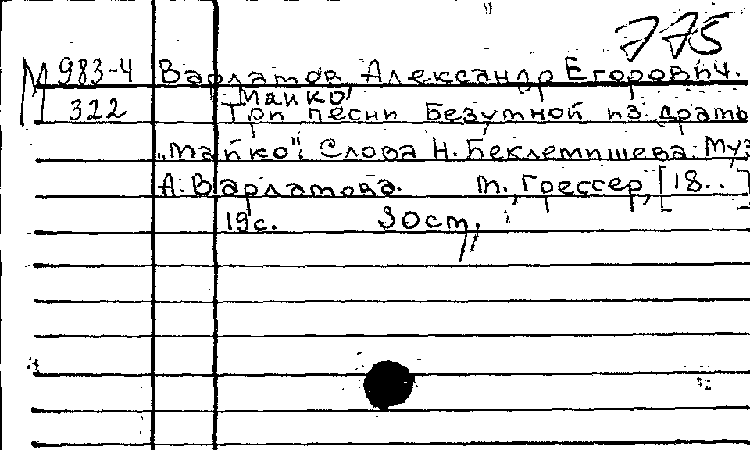 775
М 983-4 Варламов Александр Егорович.
322 "Майко"
Три песни Безумной из драмы
„Майко": Слова Н. Беклемишева. Муз
А. Варламова. М., Грессер, [18..]
19с. 30 ст,